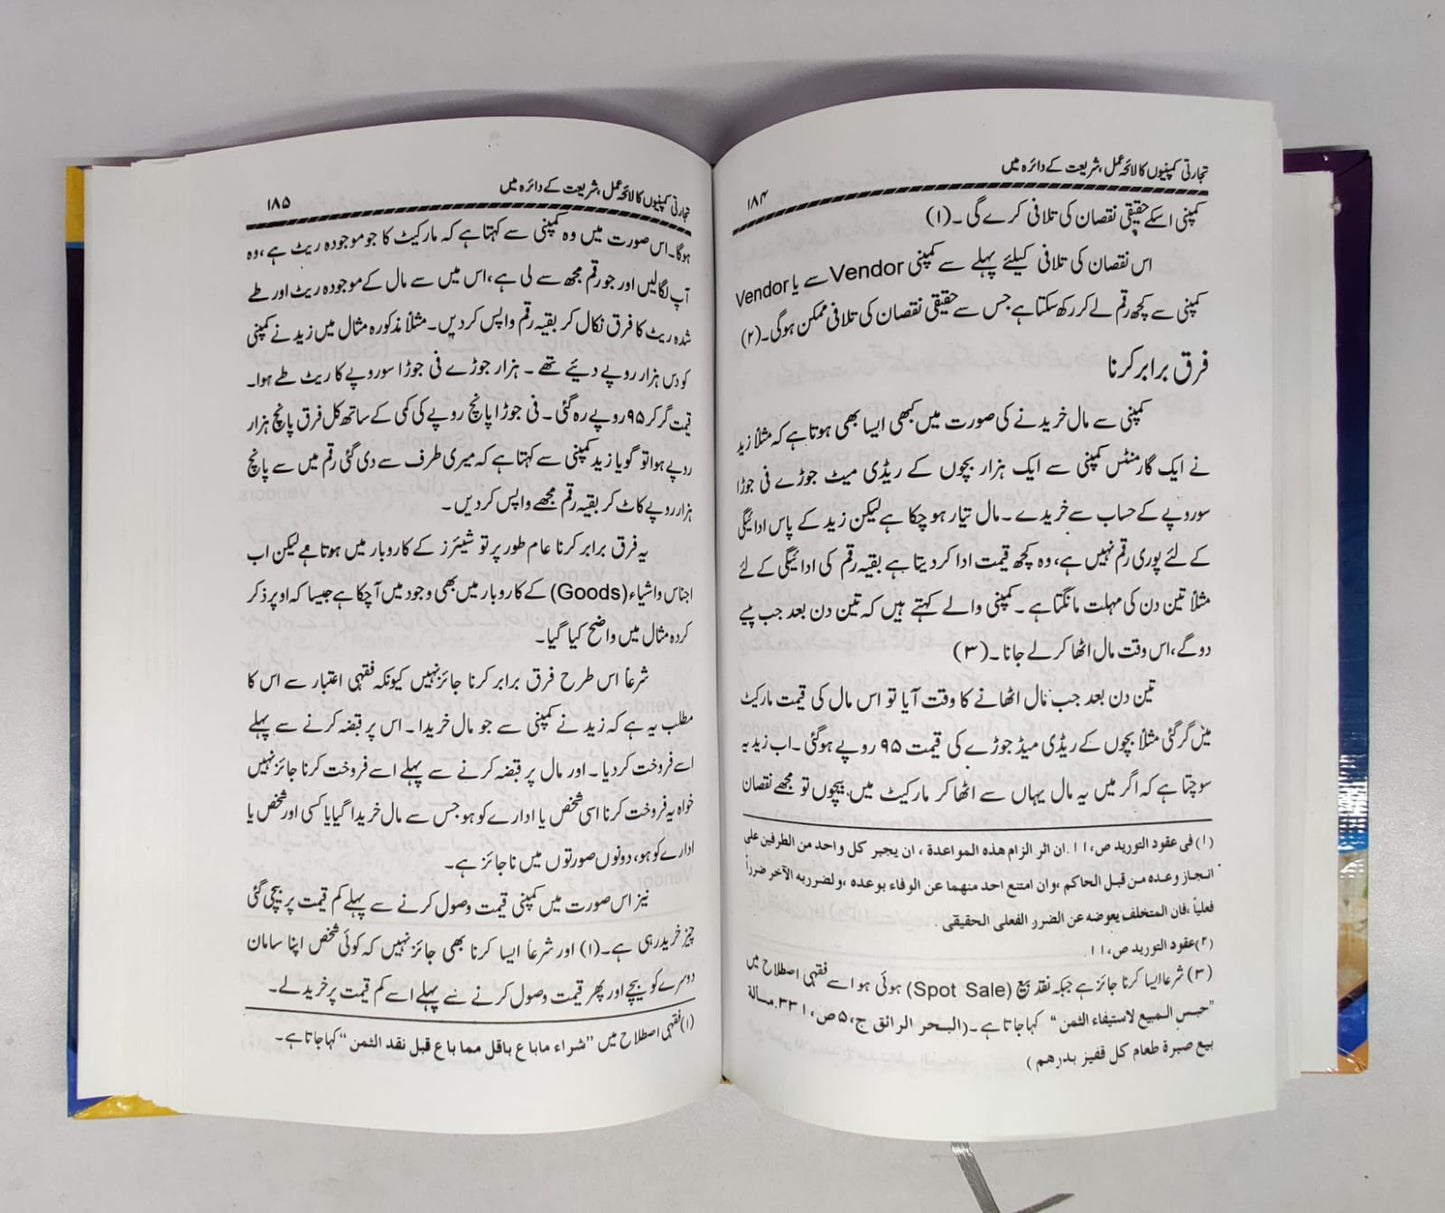 تجارتی کمپنیوں کا لائحہ عمل، شریعت کے دائرہ میں
۱۸۴
کمپنی اسکے حقیقی نقصان کی تلافی کرے گی۔(۱)
اس نقصان کی تلافی کیلئے پہلے سے کمپنی Vendor سے یا Vendor
کمپنی سے کچھ رقم لے کر رکھ سکتا ہے جس سے حقیقی نقصان کی تلافی ممکن ہوگی۔(۲)
فرق برابر کرنا
کمپنی سے مال خریدنے کی صورت میں کبھی ایسا بھی ہوتا ہے کہ مثلاً زید
نے ایک گارمنٹس کمپنی سے ایک ہزار بچوں کے ریڈی میٹ جوڑے فی جوڑا
سو روپے کے حساب سے خریدے۔ مال تیار ہو چکا ہے لیکن زید کے پاس ادائیگی
کے لئے پوری رقم نہیں ہے، وہ کچھ قیمت ادا کر دیتا ہے بقیہ رقم کی ادائیگی کے لئے
مثلاً تین دن کی مہلت مانگتا ہے۔ کمپنی والے کہتے ہیں کہ تین دن بعد جب پیسے
دو گے، اس وقت مال اٹھا کر لے جانا۔(۳)
تین دن بعد جب مال اٹھانے کا وقت آیا تو اس مال کی قیمت مارکیٹ
میں گر گئی مثلاً بچوں کے ریڈی میڈ جوڑے کی قیمت ۹۵ روپے ہوگئی۔ اب زید یہ
سوچتا ہے کہ اگر میں یہ مال یہاں سے اٹھا کر مارکیٹ میں بیچوں تو مجھے نقصان
(۱) فی عقود التورید ص، ۱۱. ان اثر الزام هذه المواعدة ، ان يجبر كل واحد من الطرفين على
انجاز وعده من قبل الحاكم ،وان امتنع احد منهما عن الوفاء بوعده ،ولضرربه الآخر ضرراً
فعلياً ،فان المتخلف يعوضه عن الضرر الفعلى الحقيقى .
(۲) عقود التورید ص، ۱۱.
(۳) شرعا ایسا کرنا جائز ہے جبکہ نقد بیع (Spot Sale) ہوئی ہو اسے فقہی اصطلاح میں
"حبس المبيع لاستيفاء الثمن" کہا جاتا ہے۔(البحر الرائق ج، ۵ ص، ۳۳۱. مسألة
بيع صبرة طعام كل قفيز بدرهم )
تجارتی کمپنیوں کا لائحہ عمل، شریعت کے دائرہ میں
۱۸۵
ہوگا۔ اس صورت میں وہ کمپنی سے کہتا ہے کہ مارکیٹ کا جو موجودہ ریٹ ہے، وہ
آپ لگالیں اور جو رقم مجھ سے لی ہے، اس میں سے مال کے موجودہ ریٹ اور طے
شدہ ریٹ کا فرق نکال کر بقیہ رقم واپس کردیں۔ مثلاً مذکورہ مثال میں زید نے کمپنی
کو دس ہزار روپے دیئے تھے ۔ ہزار جوڑے فی جوڑا سو روپے کا ریٹ طے ہوا۔
قیمت گر کر ۹۵ روپے رہ گئی ۔ فی جوڑا پانچ روپے کی کمی کے ساتھ کل فرق پانچ ہزار
روپے ہوا تو گویا زید کمپنی سے کہتا ہے کہ میری طرف سے دی گئی رقم میں سے پانچ
ہزار روپے کاٹ کر بقیہ رقم مجھے واپس کردیں ۔
یہ فرق برابر کرنا عام طور پر تو شیئرز کے کاروبار میں ہوتا ہے لیکن اب
اجناس و اشیاء (Goods) کے کاروبار میں بھی وجود میں آچکا ہے جیسا کہ اوپر ذکر
کردہ مثال میں واضح کیا گیا۔
شرعاً اس طرح فرق برابر کرنا جائز نہیں کیونکہ فقہی اعتبار سے اس کا
مطلب یہ ہے کہ زید نے کمپنی سے جو مال خریدا ۔ اس پر قبضہ کرنے سے پہلے
اسے فروخت کردیا ۔ اور مال پر قبضہ کرنے سے پہلے اسے فروخت کرنا جائز نہیں
خواہ یہ فروخت کرنا اسی شخص یا ادارے کو ہو جس سے مال خریدا گیا یا کسی اور شخص یا
ادارے کو ہو، دونوں صورتوں میں ناجائز ہے۔
نیز اس صورت میں کمپنی قیمت وصول کرنے سے پہلے کم قیمت پر بیچی گئی
چیز خرید رہی ہے۔(۱) اور شرعاً ایسا کرنا بھی جائز نہیں کہ کوئی شخص اپنا سامان
دوسرے کو بیچے اور پھر قیمت وصول کرنے سے پہلے اسے کم قیمت پر خرید لے۔
(۱) فقہی اصطلاح میں "شراء ماباع باقل مما باع قبل نقد الثمن" کہا جاتا ہے۔